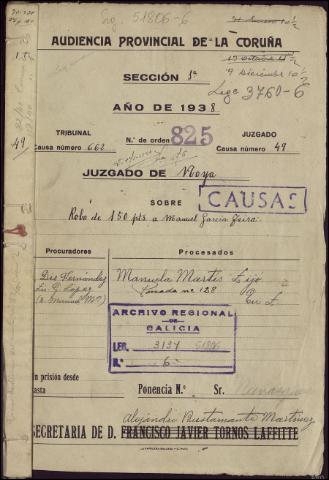 Leg. 51806-6
AUDIENCIA PROVINCIAL DE LA CORUÑA
SECCIÓN 1ª
9 Diciembre 10½
Lege 3760-6
AÑO DE 1938
TRIBUNAL
Causa número 662
N.º de orden 825
JUZGADO
Causa número 49
49
JUZGADO DE Noya
SOBRE
CAUSAS
Robo de 150 pts a Manuel García
Procuradores
Procesados
Manuela Martis Lijó
ARCHIVO REGIONAL
DE
GALICIA
LEG. 3134 51806
N.º 6
n prisión desde
asta
Ponencia N.º
Sr.
Alejandro Bustamante Martínez
SECRETARIA DE D. FRANCISCO JAVIER TORNOS LAFFITTE